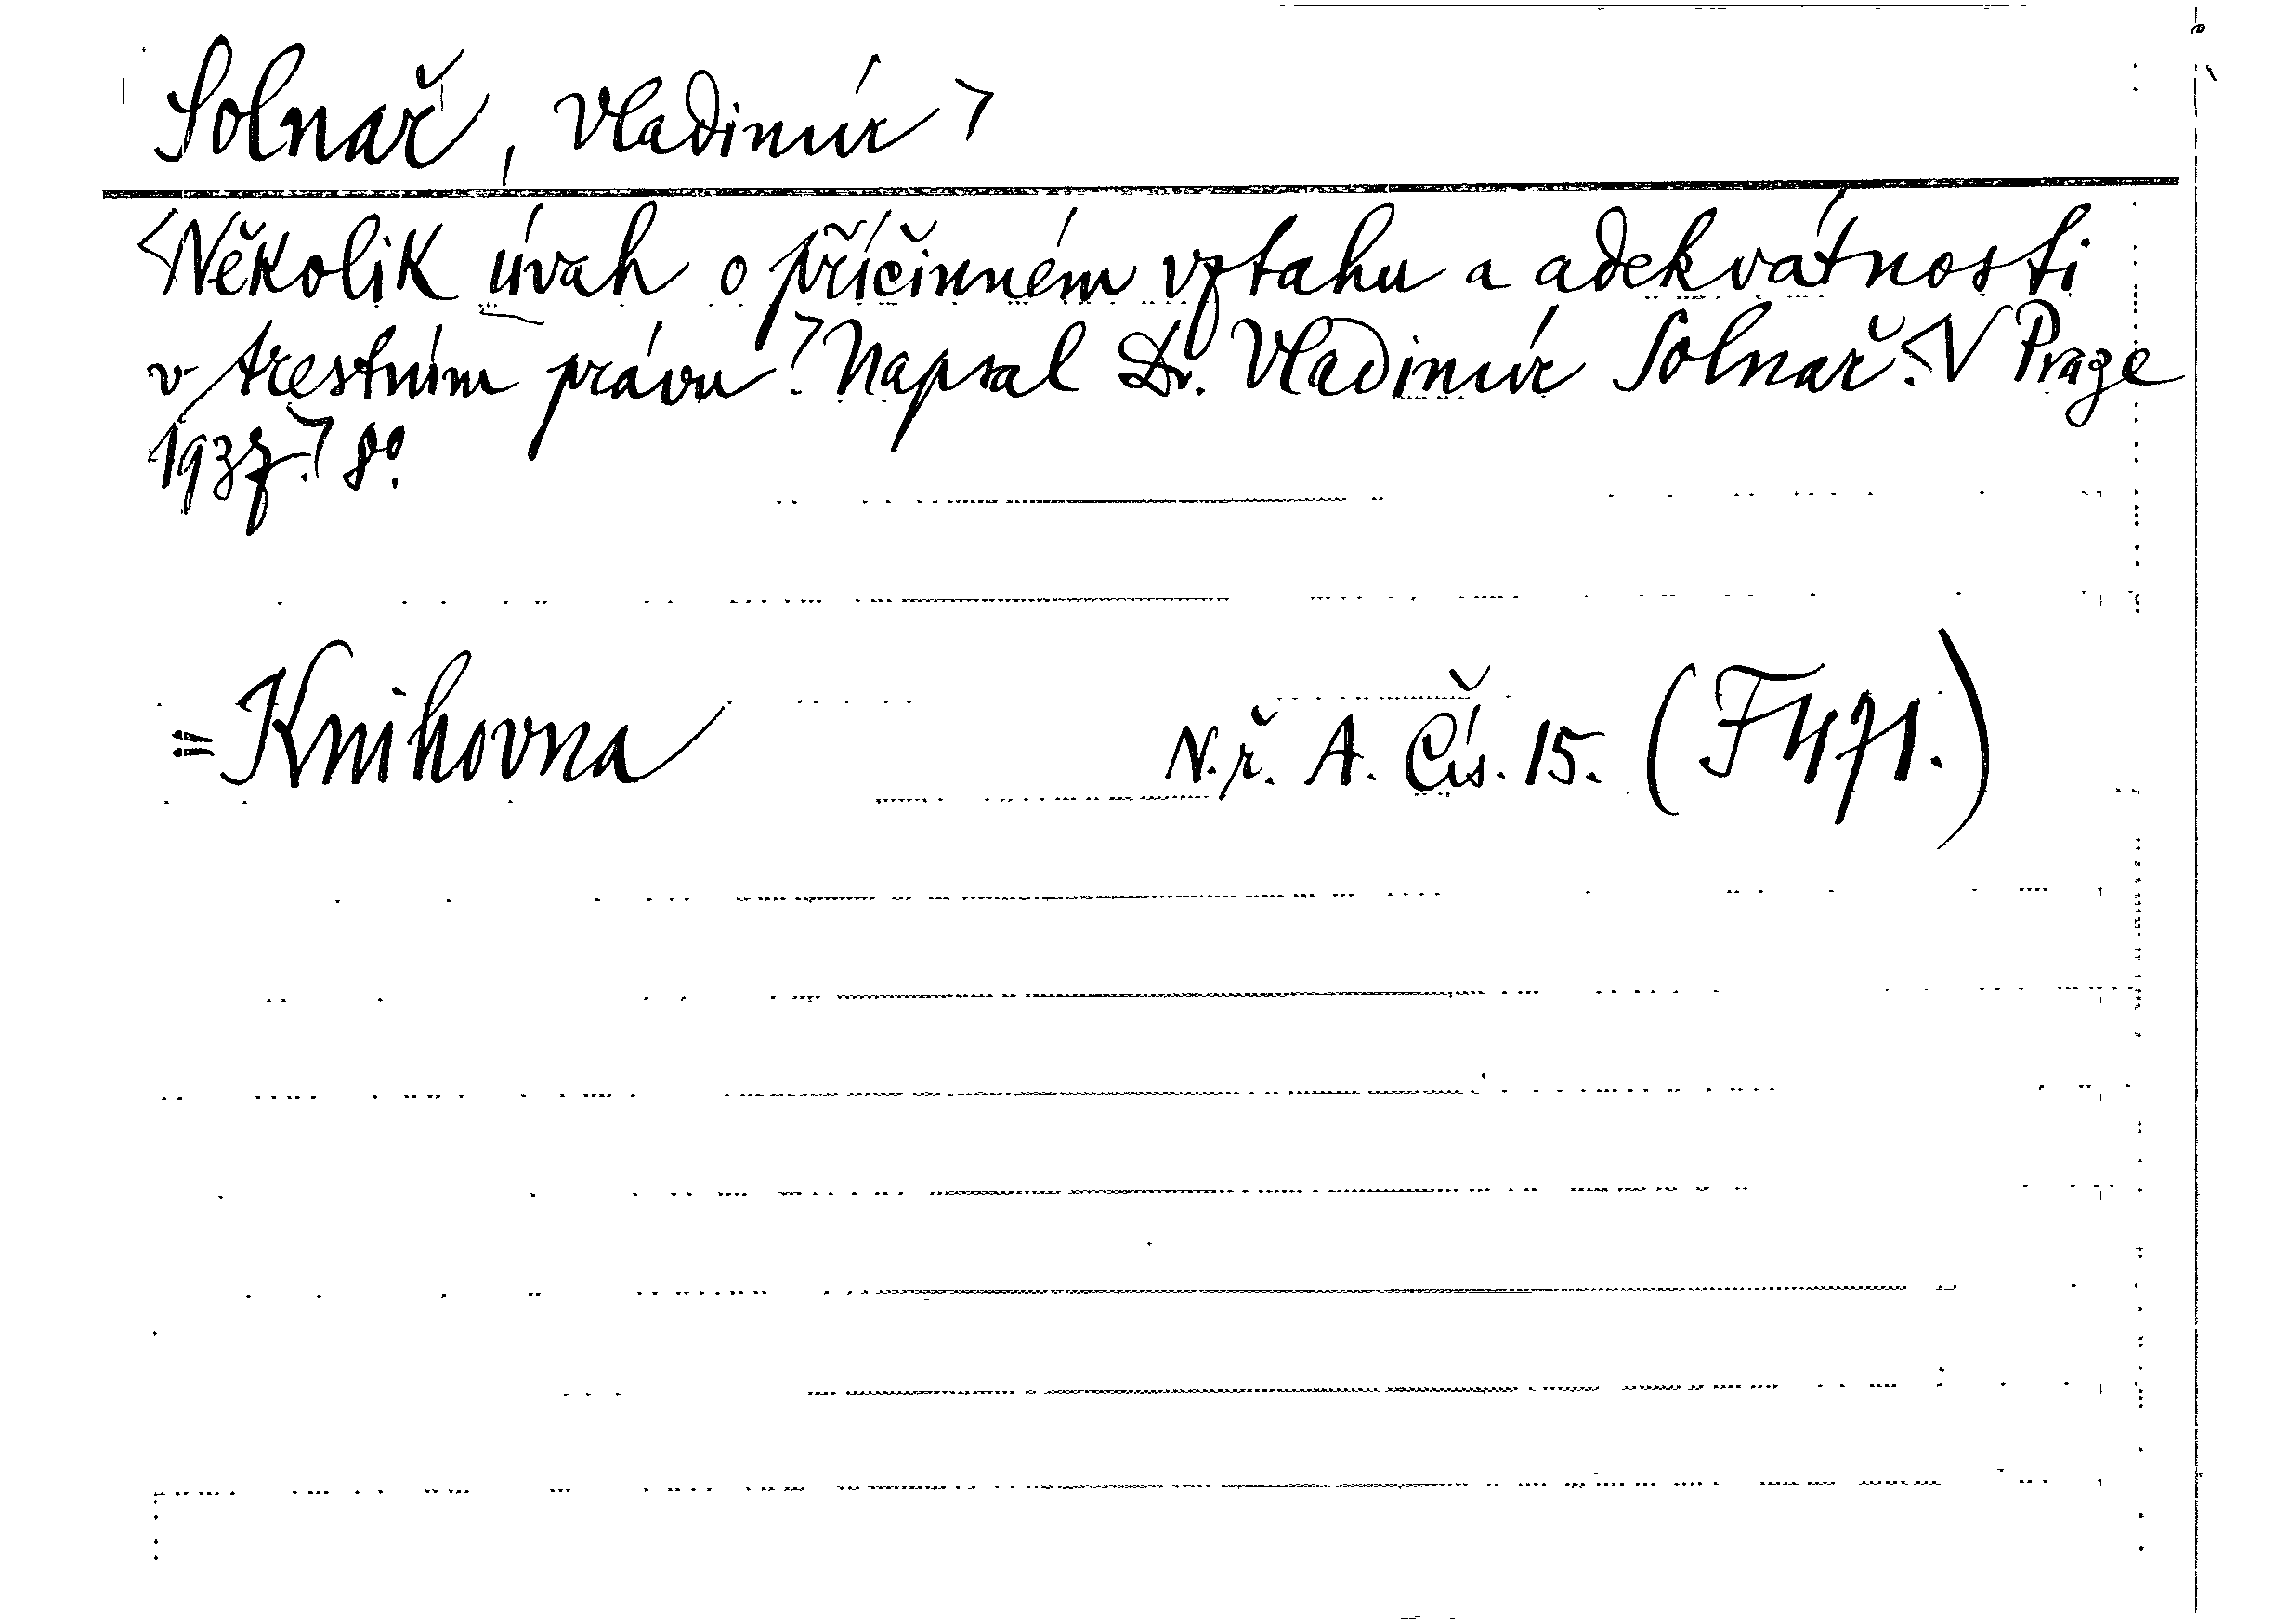 Solnař, Vladimír>
<Několik úvah o příčinném vztahu a adekvátnosti
v trestním právu.> Napsal Dr. Vladimír Solnař. <V Praze
1937.> 8º.
= Knihovna N. ř. A. Čís. 15. (F 471.)